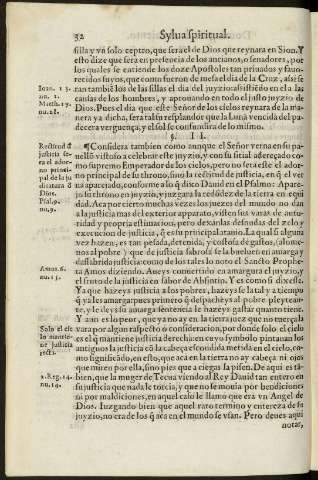 32 Sylua spiritual.
silla y vn solo ceptro, que será el de Dios que reynara en Sion. Y
esto dize que sera en presencia de los ancianos, o senadores, por
los quales se entiende los doze Apostoles tan priuados y fauo-
recidos suyos, que como fueron de mesa el dia de la Cruz, assi se
ran tambiẽ los de las sillas el dia del juyzio assistiẽdo en el a las
causas de los hombres, y aprouando en todo el justo juyzio de
Dios. Pues el dia que este Señor de los cielos reynara de la mane-
ra ya dicha, sera tal su resplandor que la Luna vencida del pa-
decera verguença, y el sol se confundira de lo mismo.
§. II.
¶ Considera tambien como aunque el Señor verna en su pa-
pellõ vistoso a celebrar este juyzio, y con su sitial adereçado co-
mo supremo Emperador de los cielos, pero no será este el ador-
no principal de su throno, sino la rectitud de justicia, en q̃ el ver
na aparerado, conforme a lo q̃ dixo Dauid en el Psalmo: Apare-
jasu throno en juyzio, y juzgara la redõdez de la tierra en equi
dad. Aca por cierto muchas vezes los juezes del mundo no dan
a la justicia mas del exterior apparato, vistẽ sus varas de auto-
ridad y propria estimacion, pero dexanlas desnudas del zelo y
execucion de justicia, q̃ es su principal atauio. La qual si alguna
vez hazen, es tan pesada, detenida, y costosa de gastos, (alome-
nos al pobre) que de justicia sabrosa se la bueluen en amarga y
dessabrida justicia como de los tales lo noto el Sancto Prophe-
ta Amos diziendo. Aueys conuertido en amargura el juyzio, y
el fruto de la justicia en sabor de Absintio. Y es como si dixesse.
Ya que hazeys justicia a los pobres, hazeys se la tal y a tiempo
q̃ ya les amargar pues primero q̃ despacheys al pobre pleytean-
te, y le deys su amarga sentencia le hazeys gastar quanto tiene.
Y aun es lo peor, que ya no ay en la tierra juez que no mengüe la
vara por algun respecto o consideracion, por donde solo el cielo
es el q̃ mantiene justicia derecha en cuyo symbolo pintauan los
antiguos la justicia cõ la cabeça escondida metida en el cielo, co-
mo significãdo, en esto, que aca en la tierra no ay cabeça ni ojos
que miren por ella, sino pies que a ciegas la pisen. De aqui es tã-
bien, que la muger de Tecua viendo al Rey Dauid tan entero en
su justicia que nada le torcia, y que no se mouia por bendiciones
ni por maldiciones, en aquel caso le llamo que era vn Angel de
Dios. Iuzgando bien que aquel raro termino y entereza de su
juyzio, no era de los q̃ aca en el mundo se vsan. Pero deues aqui
notar,
Ioan. 13.
nu. 1.
Matth. 19.
nu. 28.
Rectitud d̃
justicia se-
ra el ador-
no princi-
pal de la ju
dicatura d̃
Dios.
Psal. 9.
nu. 9.
Amos. 6.
nu. 13.
Solo el cie
lo mantie-
ne justicia
recta.
2. Reg. 14.
nu. 14.